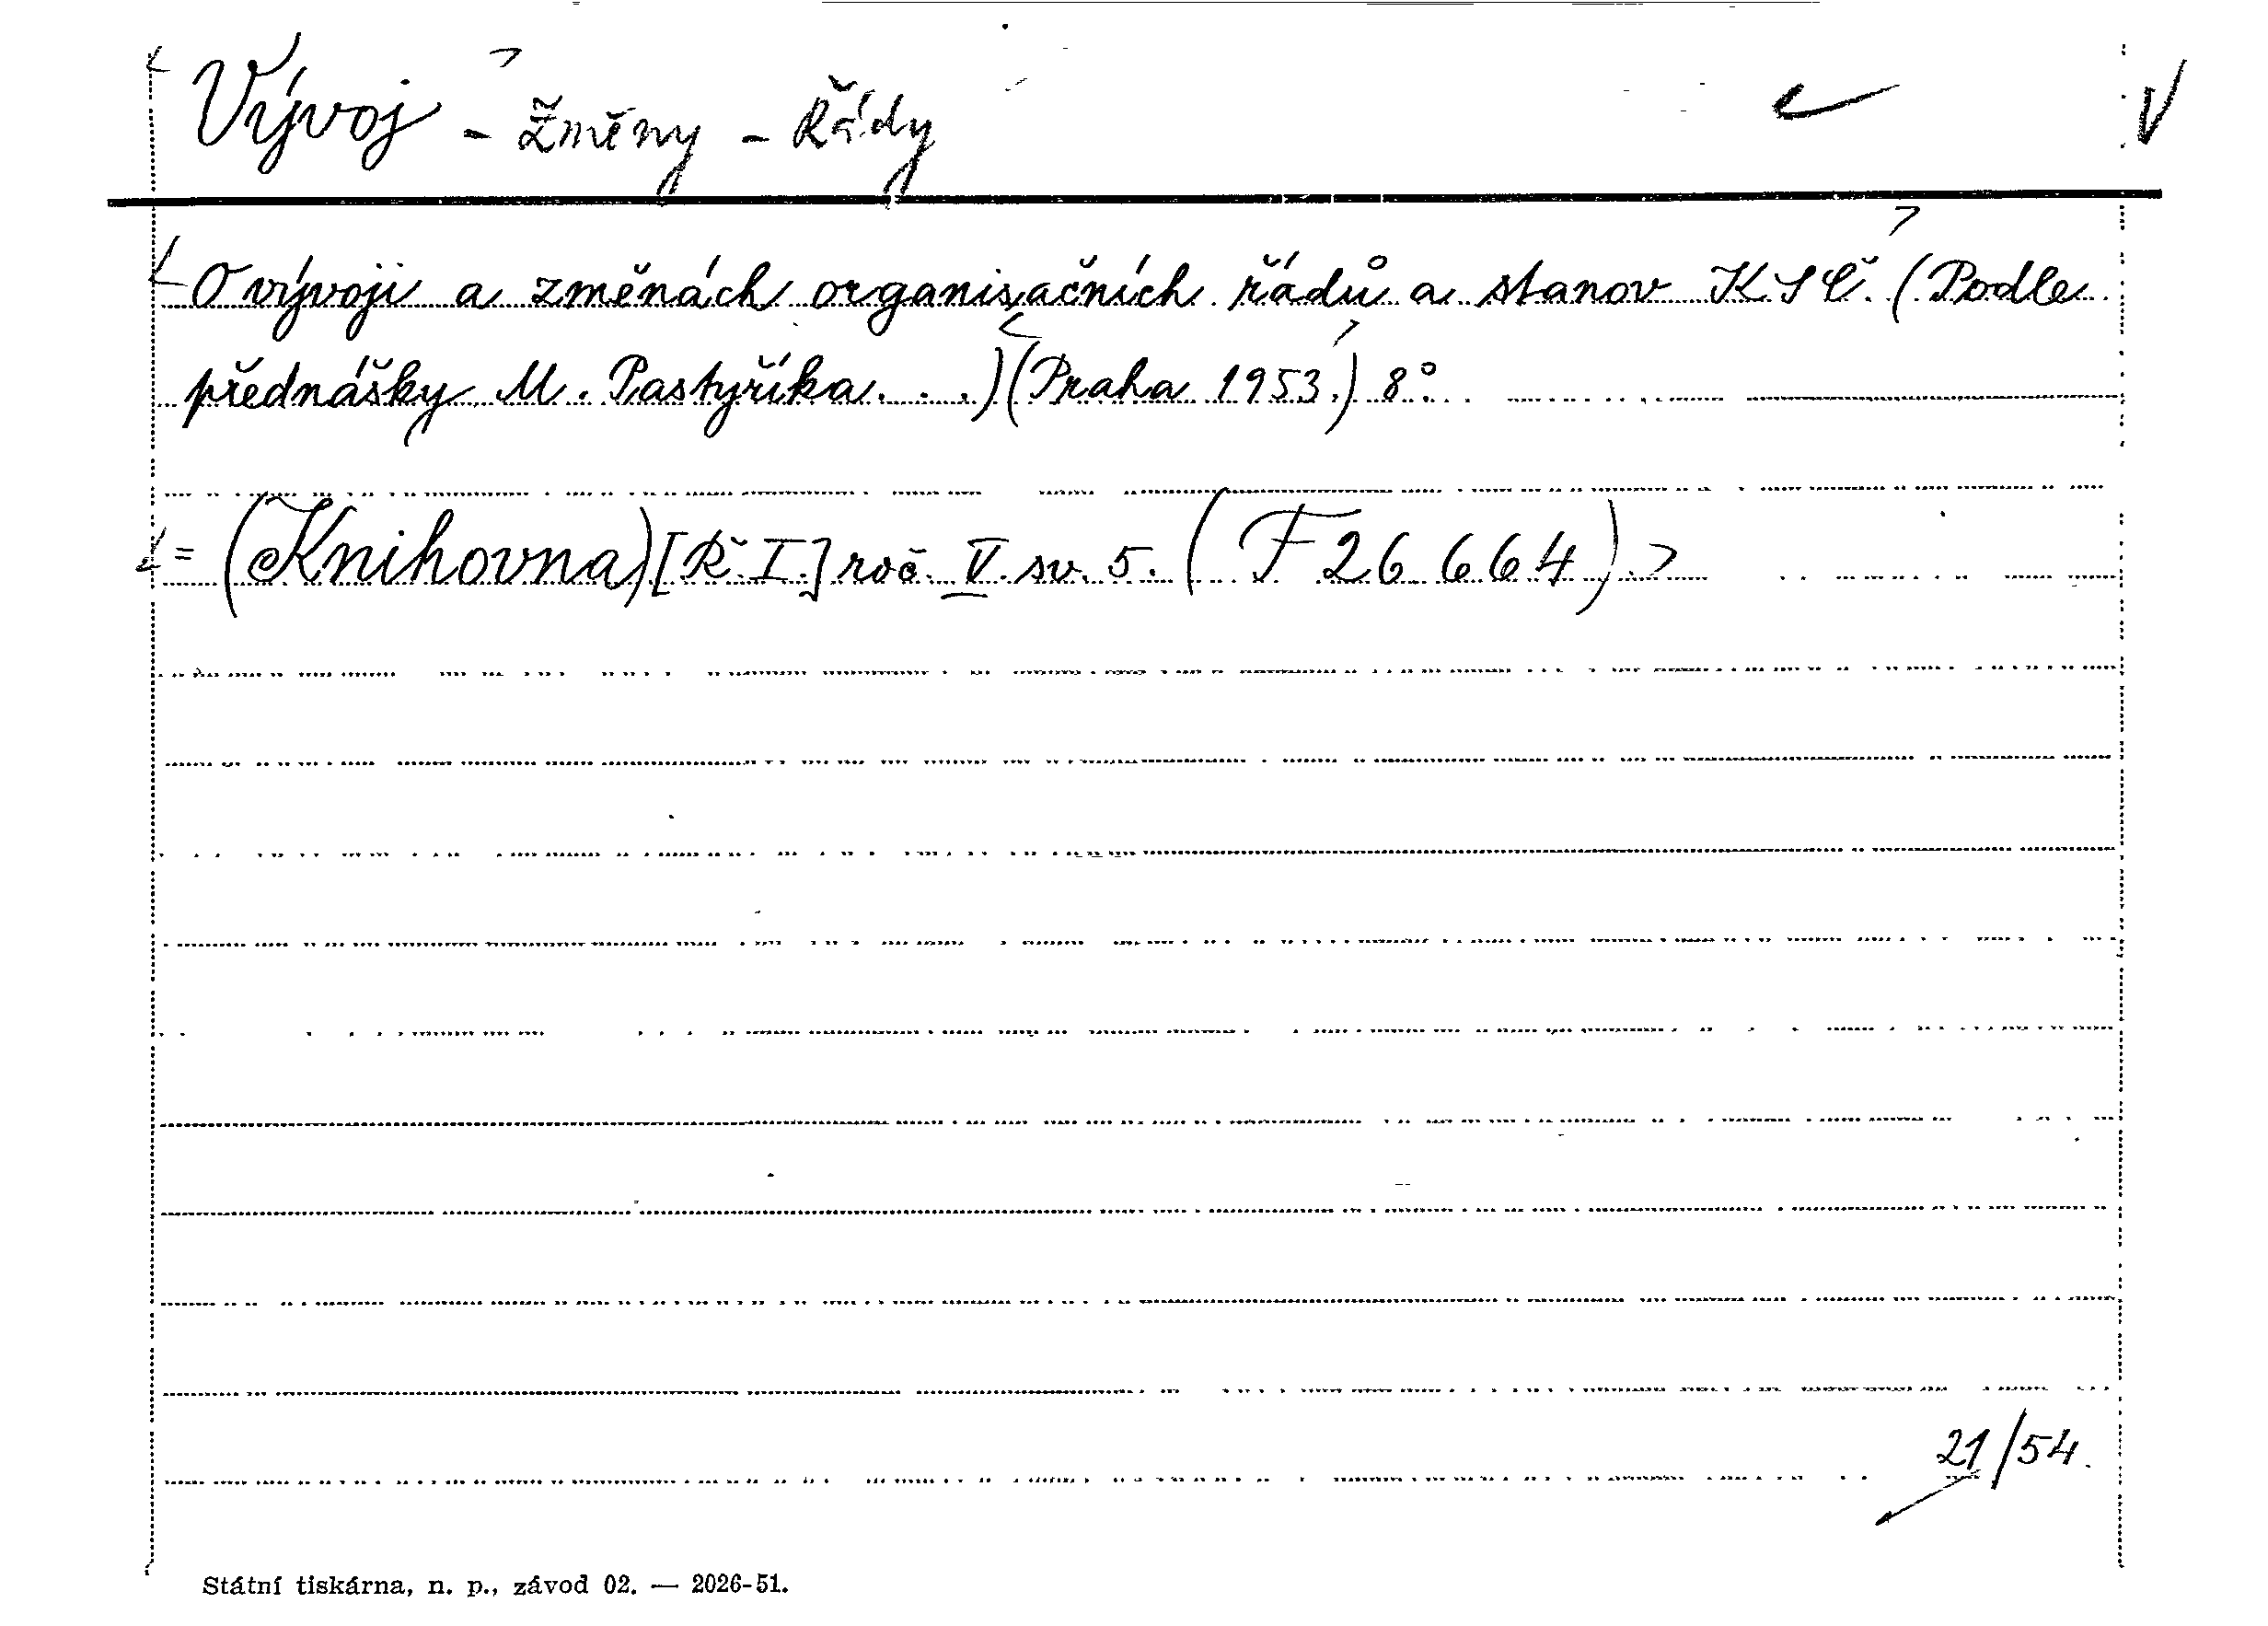 Vývoj - Změny - Řády V
O vývoji a změnách organisačních řádů a stanov KSČ. (Podle
přednášky M. Pastyříka...) (Praha 1953.) 8°.
= (Knihovna) [Ř. I.] roč. V. sv. 5. (F 26 664).
21/54.
Státní tiskárna, n. p., závod 02. — 2026-51.